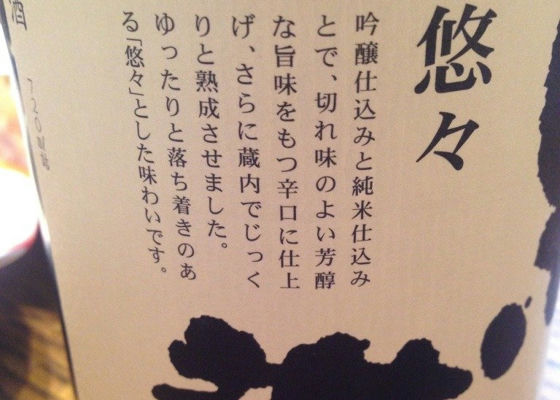 悠々
吟醸仕込みと純米仕込み
とで、切れ味のよい芳醇
な旨味をもつ辛口に仕上
げ、さらに蔵内でじっく
りと熟成させました。
ゆったりと落ち着きのあ
る「悠々」とした味わいです。
酒
720ml詰